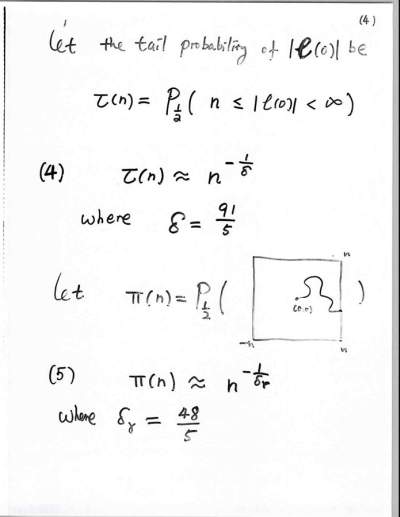 (4)
Let the tail probability of |𝒞(0)| be
τ(n) = P_{1/2} ( n ≤ |𝒞(0)| < ∞ )
(4) τ(n) ≈ n^{-1/δ}
where δ = 91/5
Let π(n) = P_{1/2} ( )
n
(0,0)
-n n
(5) π(n) ≈ n^{-1/δ_r}
where δ_r = 48/5